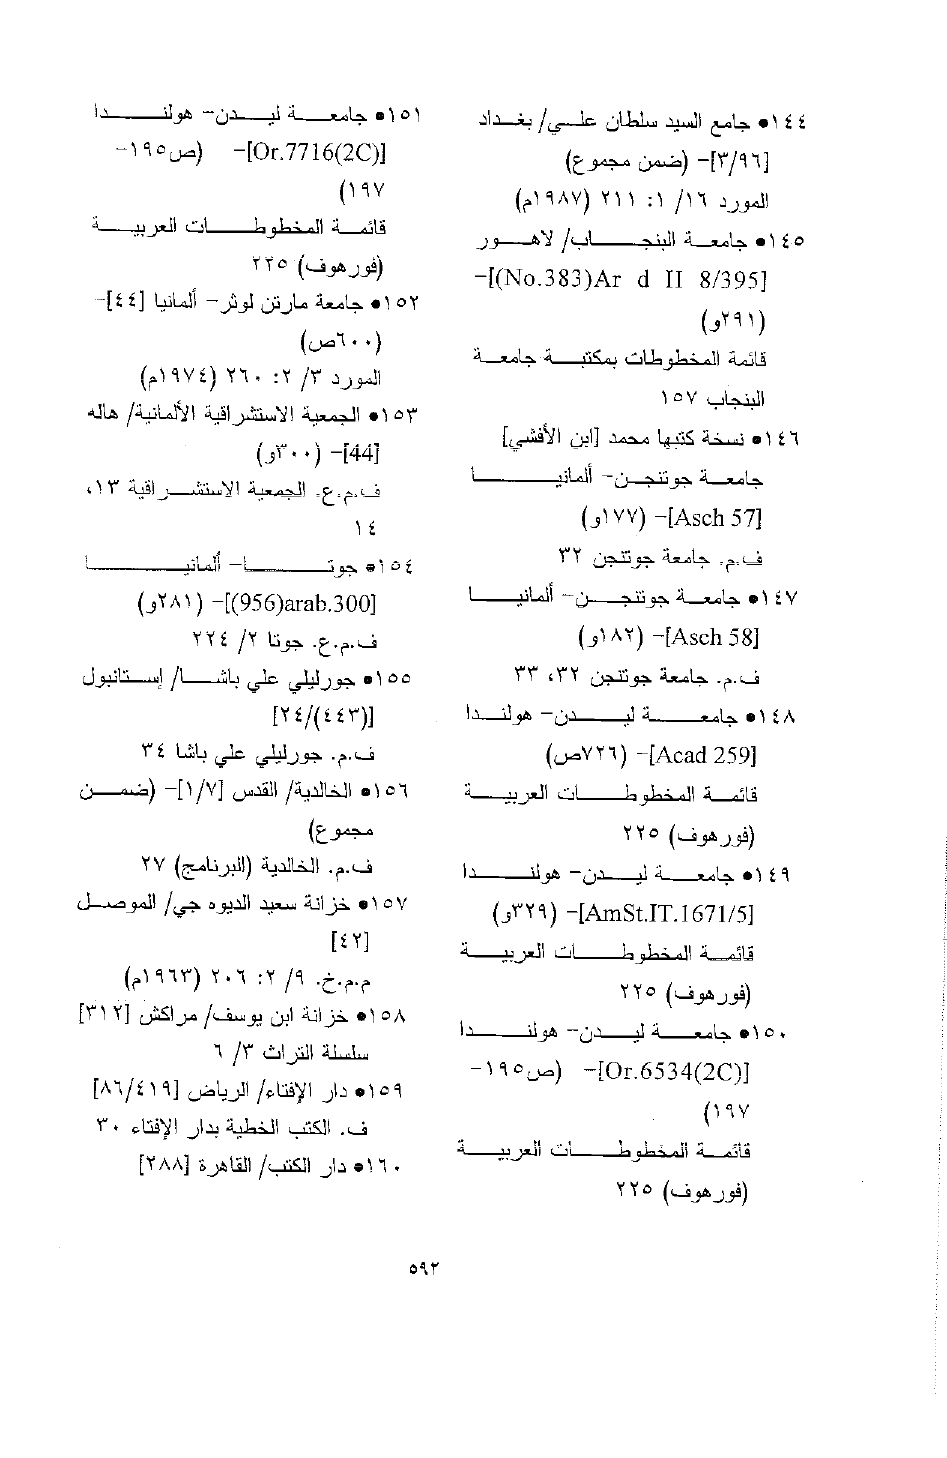 ١٤٤• جامع السيد سلطان علي/ بغداد
[٣/٩٦]- (ضمن مجموع)
المورد ١٦/ ١: ٢١١ (١٩٨٧م)
١٤٥• جامعة البنجاب/ لاهور
[No.383)Ar d II 8/395)]-
(٢٩١و)
قائمة المخطوطات بمكتبة جامعة
البنجاب ١٥٧
١٤٦• نسخة كتبها محمد [ابن الأفشي]
جامعة جوتنجن- ألمانيا
[Asch 57]- (١٧٧و)
ف.م. جامعة جوتنجن ٣٢
١٤٧• جامعة جوتنجن- ألمانيا
[Asch 58]- (١٨٢و)
ف.م. جامعة جوتنجن ٣٢، ٣٣
١٤٨• جامعة ليدن- هولندا
[Acad 259]- (٧٢٦ص)
قائمة المخطوطات العربية
(فورهوف) ٢٢٥
١٤٩• جامعة ليدن- هولندا
[AmSt.IT.1671/5]- (٣٢٩و)
قائمة المخطوطات العربية
(فورهوف) ٢٢٥
١٥٠• جامعة ليدن- هولندا
[Or.6534(2C)]- (ص١٩٥-
١٩٧)
قائمة المخطوطات العربية
(فورهوف) ٢٢٥
١٥١• جامعة ليدن- هولندا
[Or.7716(2C)]- (ص١٩٥-
١٩٧)
قائمة المخطوطات العربية
(فورهوف) ٢٢٥
١٥٢• جامعة مارتن لوثر- ألمانيا [٤٤]-
(٦٠٠ص)
المورد ٣/ ٢: ٢٦٠ (١٩٧٤م)
١٥٣• الجمعية الاستشراقية الألمانية/ هاله
[44]- (٣٠٠و)
ف.م.ع. الجمعية الاستشراقية ١٣،
١٤
١٥٤• جوتا- ألمانيا
[956)arab.300)]- (٢٨١و)
ف.م.ع. جوتا ٢/ ٢٢٤
١٥٥• جورليلي علي باشا/ إستانبول
[(٤٤٣)/٢٤]
ف.م. جورليلي علي باشا ٣٤
١٥٦• الخالدية/ القدس [١/٧]- (ضمن
مجموع)
ف.م. الخالدية (البرنامج) ٢٧
١٥٧• خزانة سعيد الديوه جي/ الموصل
[٤٢]
م.م.خ. ٩/ ٢: ٢٠٦ (١٩٦٣م)
١٥٨• خزانة ابن يوسف/ مراكش [٣١٢]
سلسلة التراث ٣/ ٦
١٥٩• دار الإفتاء/ الرياض [٨٦/٤١٩]
ف. الكتب الخطية بدار الإفتاء ٣٠
١٦٠• دار الكتب/ القاهرة [٢٨٨]
٥٩٢